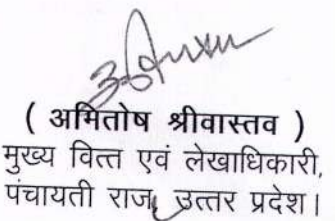 ( अमितोष श्रीवास्तव )
मुख्य वित्त एवं लेखाधिकारी,
पंचायती राज, उत्तर प्रदेश।